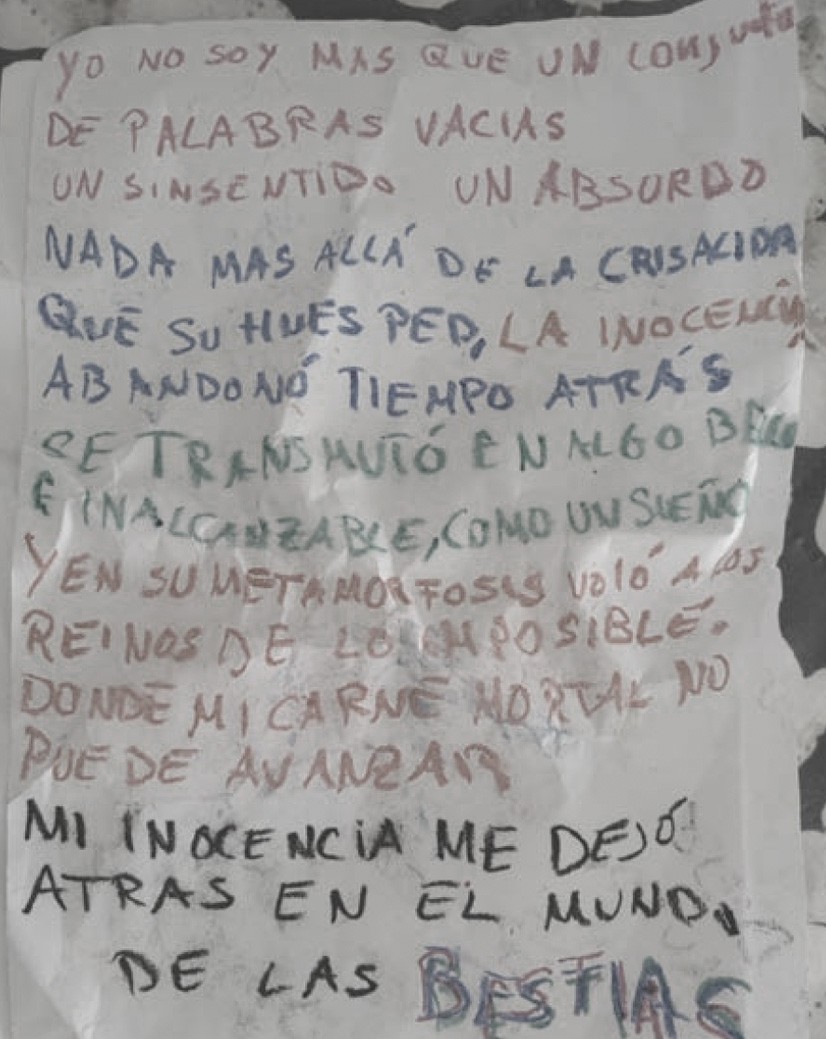 YO NO SOY MAS QUE UN CONJUNTO
DE PALABRAS VACIAS
UN SINSENTIDO UN ABSURDO
NADA MAS ALLÁ DE LA CRISALIDA
QUE SU HUESPED, LA INOCENCIA
ABANDONÓ TIEMPO ATRÁS
SE TRANSMUTÓ EN ALGO BELLO
E INALCANZABLE, COMO UN SUEÑO
Y EN SU METAMORFOSIS VOLÓ A LOS
REINOS DE LO IMPOSIBLE.
DONDE MI CARNE MORTAL NO
PUEDE AVANZAR
MI INOCENCIA ME DEJÓ
ATRAS EN EL MUNDO
DE LAS BESTIAS